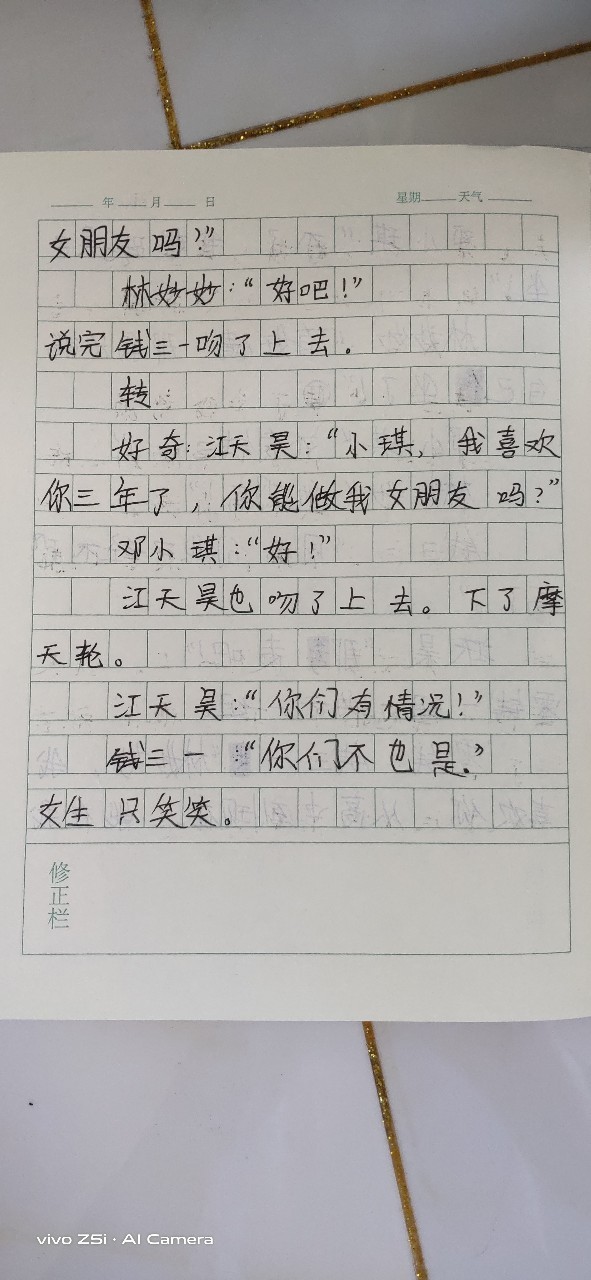 年 月 日 星期 天气
女朋友吗?”
林妙妙:“好吧!”
说完钱三一吻了上去。
转:
好奇:江天昊:“小琪,我喜欢
你三年了,你能做我女朋友吗?”
邓小琪:“好!”
江天昊也吻了上去。下了摩
天轮。
江天昊:“你们有情况!”
钱三一:“你们不也是。”
女生只笑笑。
修正栏
vivo Z5i · AI Camera